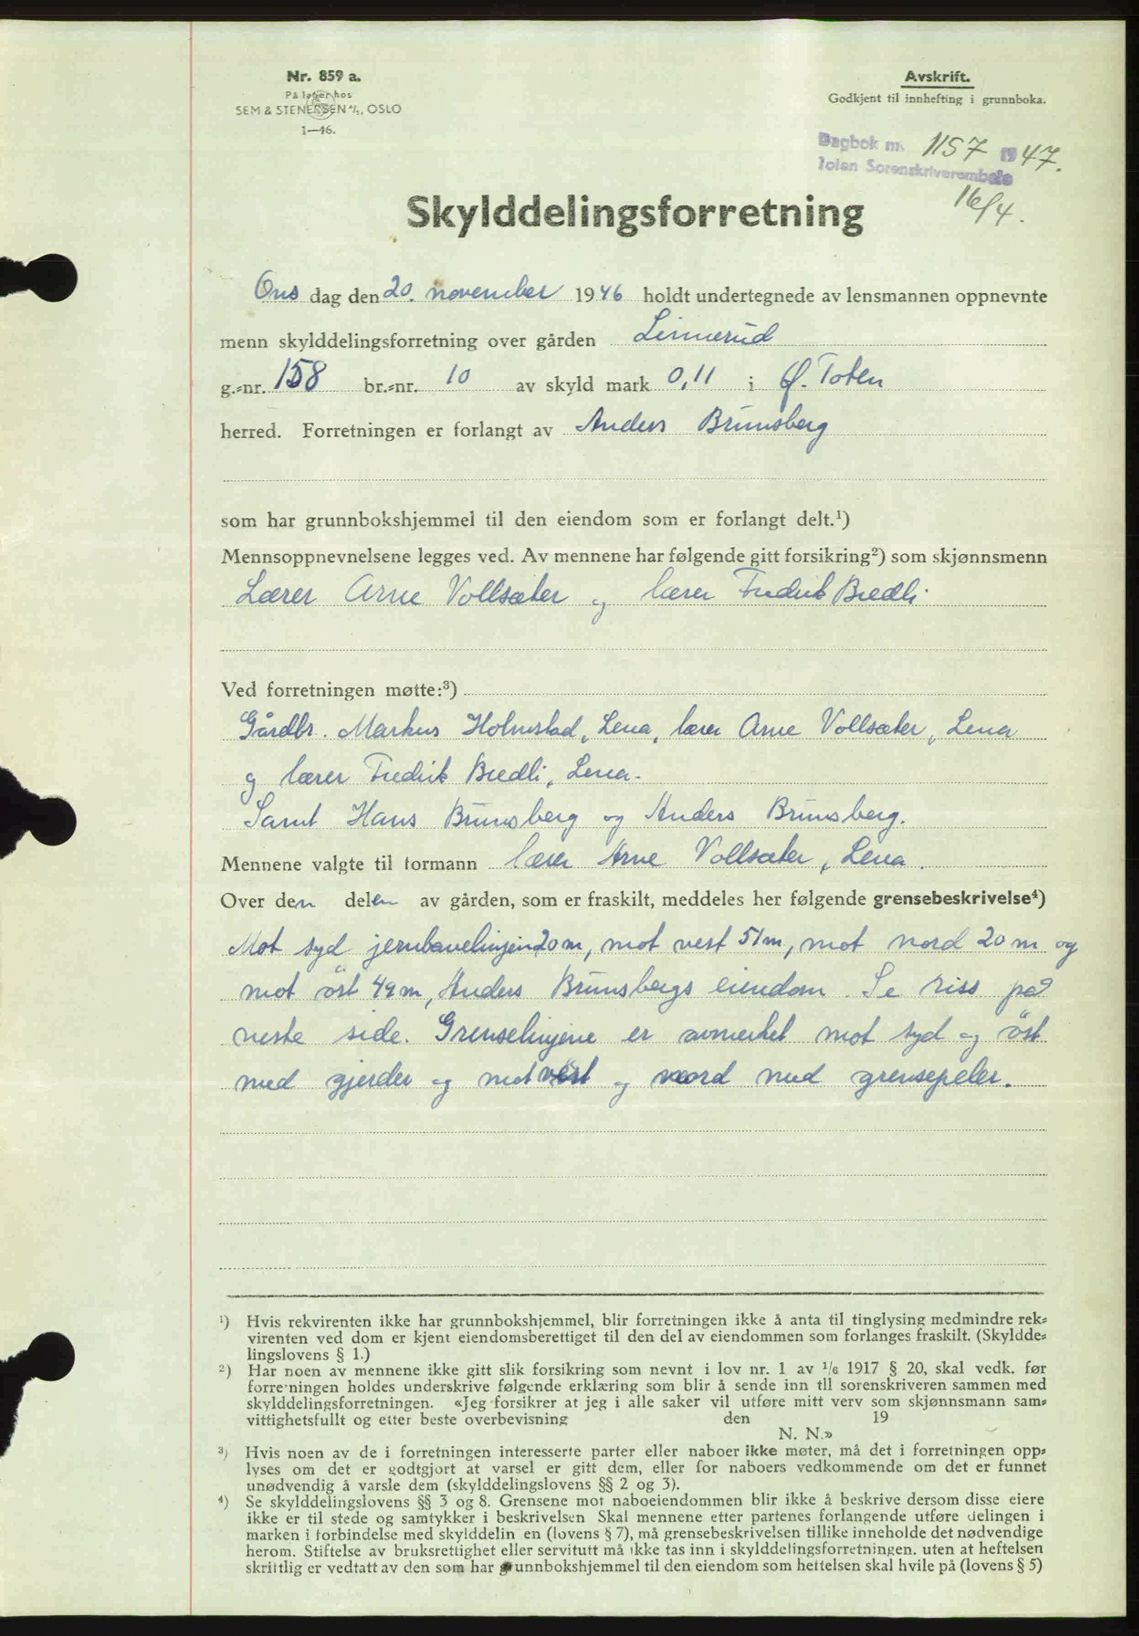 Nr. 859 a.
På lager hos
SEM & STENERSEN A/S, OSLO
1—46.
Avskrift.
Godkjent til innhefting i grunnboka.
Dagbok nr. 1157 1947.
Toten Sorenskriverembete
16/4.
Skylddelingsforretning
Ons dag den 20. november 1946 holdt undertegnede av lensmannen oppnevnte
menn skylddelingsforretning over gården Linnerud
g.=nr. 158 br.=nr. 10 av skyld mark 0,11 i Ø. Toten
herred. Forretningen er forlangt av Anders Brunsberg
som har grunnbokshjemmel til den eiendom som er forlangt delt.¹)
Mennsoppnevnelsene legges ved. Av mennene har følgende gitt forsikring²) som skjønnsmenn
Lærer Arne Vollsæter og lærer Fredrik Bredli.
Ved forretningen møtte:³)
Gårdbr. Markus Holmstad, Lena, lærer Arne Vollsæter, Lena
og lærer Fredrik Bredli, Lena.
Samt Hans Brunsberg og Anders Brunsberg.
Mennene valgte til formann lærer Arne Vollsæter, Lena.
Over den delen av gården, som er fraskilt, meddeles her følgende grensebeskrivelse⁴)
Mot syd jernbanelinjen 20 m, mot vest 51 m, mot nord 20 m og
mot öst 49 m, Anders Brunsbergs eiendom. Se riss på
neste side. Grenselinjene er avmerket mot syd og öst
med gjerder og mot vest og nord med grensepeler.
¹) Hvis rekvirenten ikke har grunnbokshjemmel, blir forretningen ikke å anta til tinglysing medmindre rek=
virenten ved dom er kjent eiendomsberettiget til den del av eiendommen som forlanges fraskilt. (Skyldde=
lingslovens § 1.)
²) Har noen av mennene ikke gitt slik forsikring som nevnt i lov nr. 1 av 1/6 1917 § 20, skal vedk. før
forretningen holdes underskrive følgende erklæring som blir å sende inn til sorenskriveren sammen med
skylddelingsforretningen. «Jeg forsikrer at jeg i alle saker vil utføre mitt verv som skjønnsmann sam=
vittighetsfullt og etter beste overbevisning den 19
N. N.»
³) Hvis noen av de i forretningen interesserte parter eller naboer ikke møter, må det i forretningen opp=
lyses om det er godtgjort at varsel er gitt dem, eller for naboers vedkommende om det er funnet
unødvendig å varsle dem (skylddelingslovens §§ 2 og 3).
⁴) Se skylddelingslovens §§ 3 og 8. Grensene mot naboeiendommen blir ikke å beskrive dersom disse eiere
ikke er til stede og samtykker i beskrivelsen Skal mennene etter partenes forlangende utføre delingen i
marken i forbindelse med skylddelin en (lovens § 7), må grensebeskrivelsen tillike inneholde det nødvendige
herom. Stiftelse av bruksrettighet eller servitutt må ikke tas inn i skylddelingsforretningen. uten at heftelsen
skriftlig er vedtatt av den som har grunnbokshjemmel til den eiendom som heftelsen skal hvile på (lovens § 5)